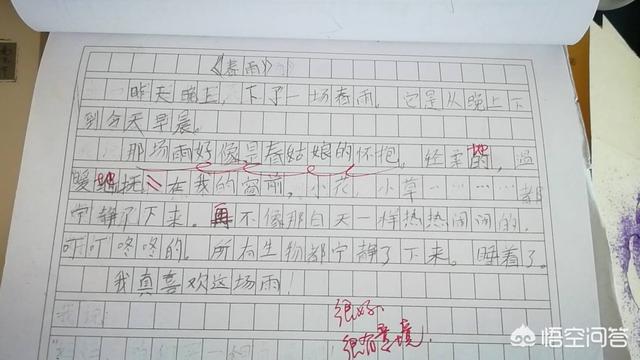 《春雨》
昨天晚上，下了一场春雨。它是从晚上下
到今天早晨。
那场雨好像是春姑娘的怀抱。轻柔的，温
暖地抚在我的窗前，小花，小草………都
宁静了下来。再不像那白天一样热热闹闹的，
叮叮咚咚的。所有生物都宁静了下来。睡着了。
我真喜欢这场雨！
很好、
很有意境。
悟空问答